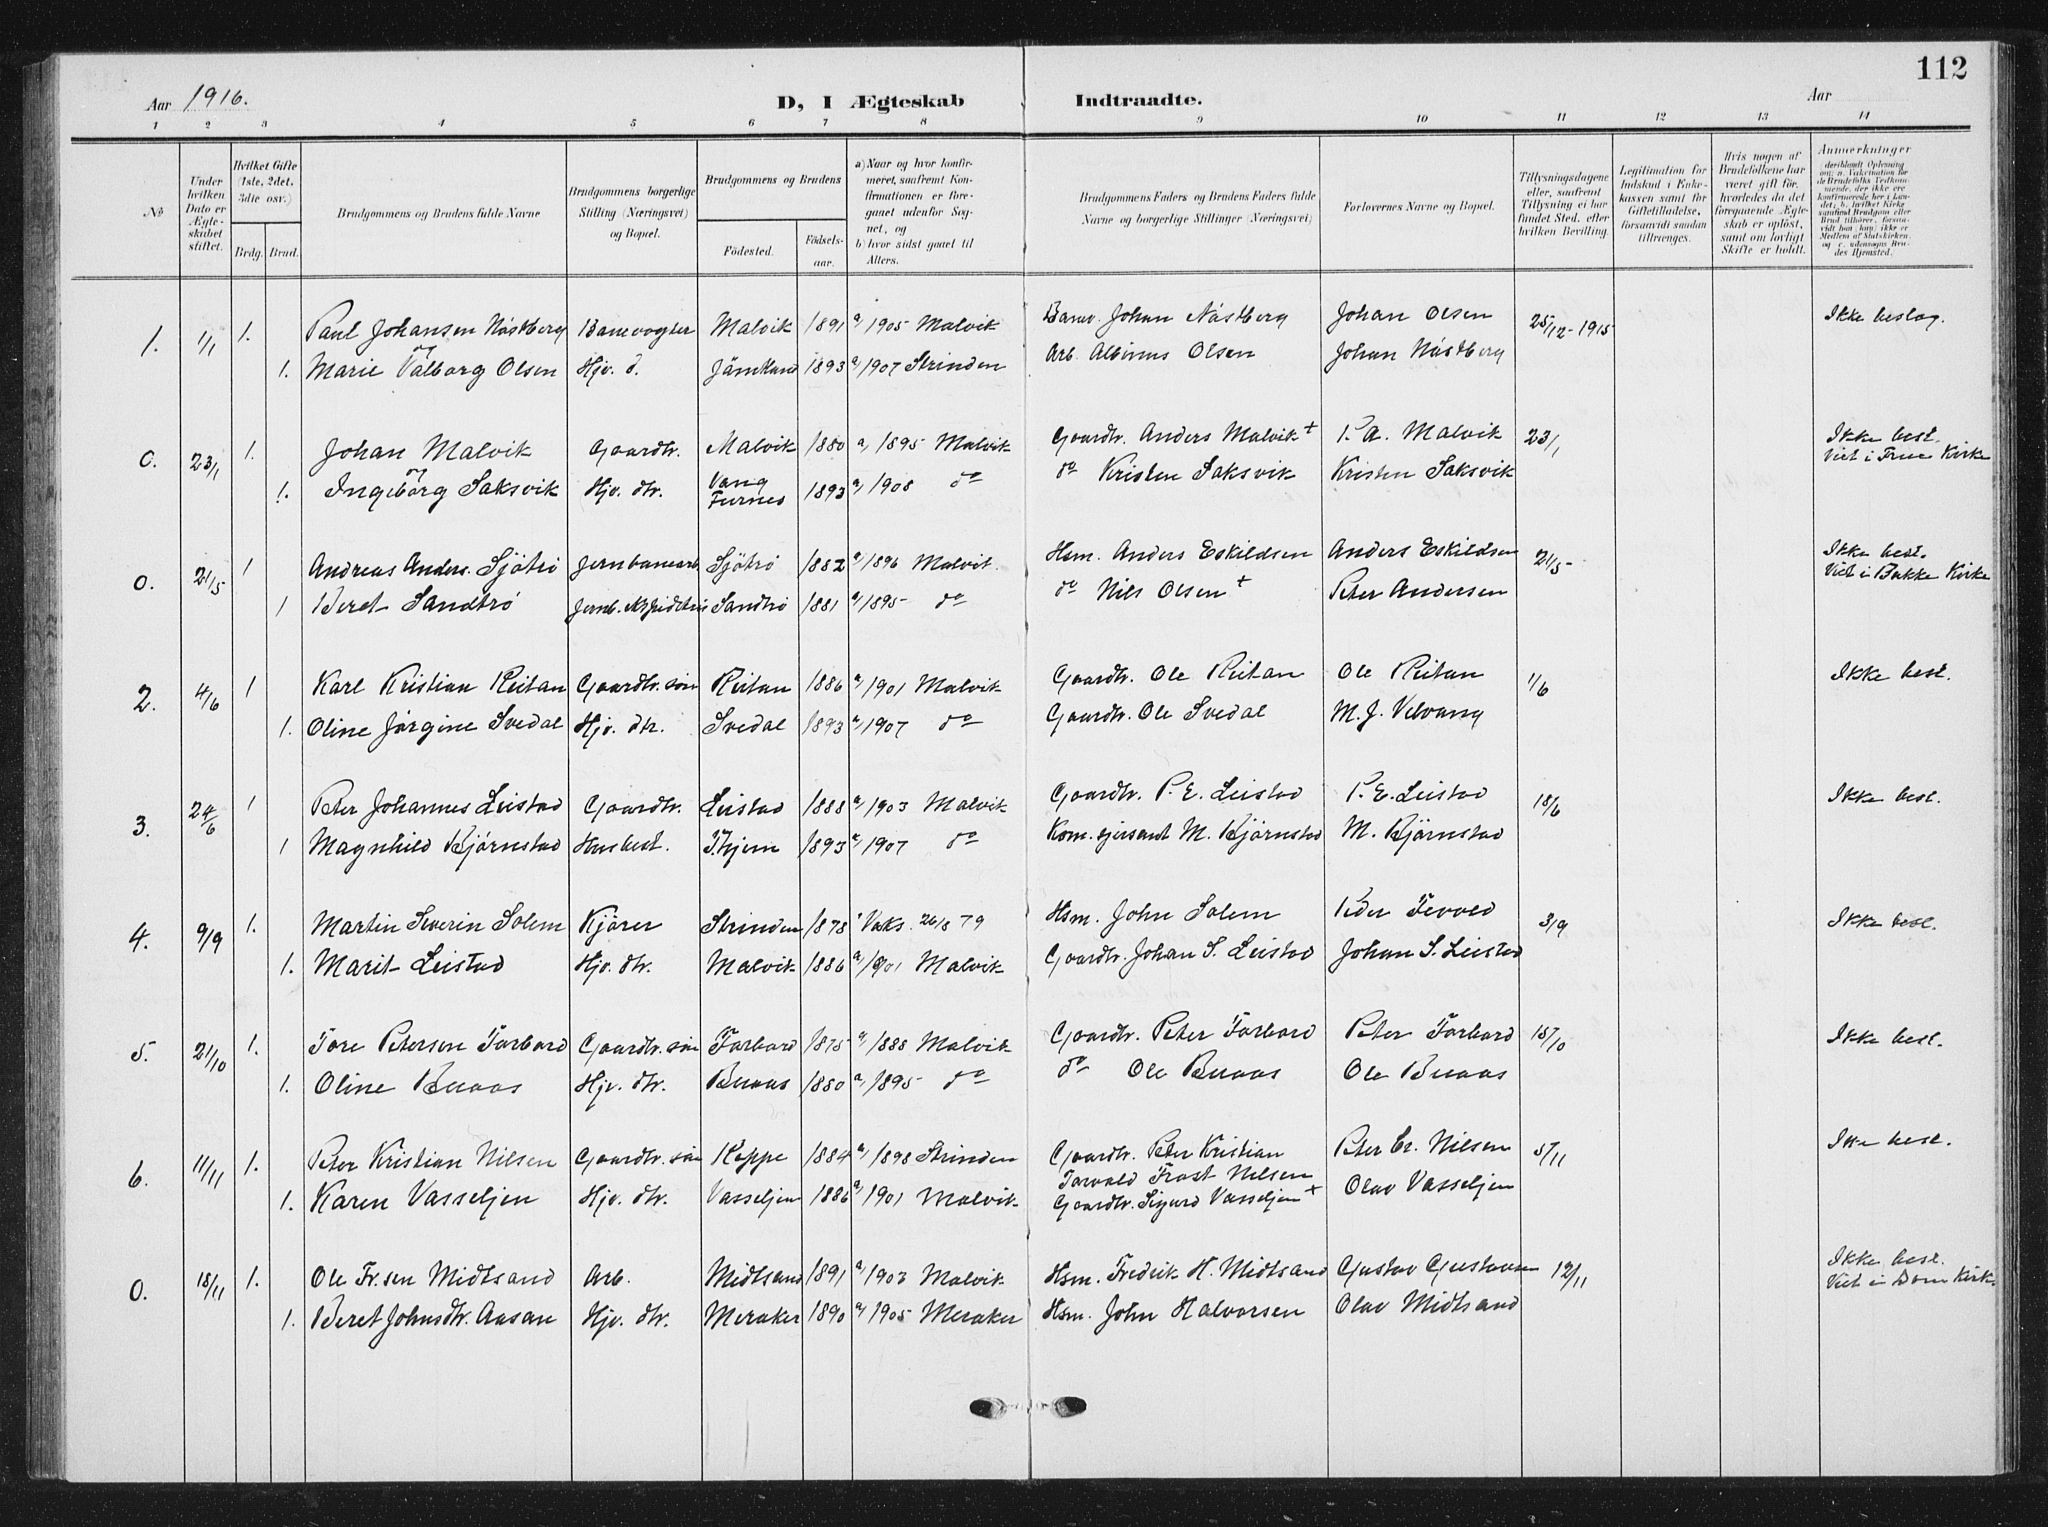 112
Aar 1916.
D, I Ægteskab Indtraadte.
Aar
1 2 3 4 5 6 7 8 9 10 11 12 13 14
No
Under hvilken Dato er Ægteskabet stiftet.
Hvilket Gifte (1ste, 2det, 3die osv.)
Brdg. Brud.
Brudgommens og Brudens fulde Navne
Brudgommens borgerlige Stilling (Næringsvei) og Bopæl.
Brudgommens og Brudens
Fødested.
Fødselsaar.
a) Naar og hvor konfirmeret, saafremt Konfirmationen er foregaaet udenfor Sognet, og
b) hvor sidst gaaet til Alters.
Brudgommens Faders og Brudens Faders fulde Navne og borgerlige Stillinger (Næringsvei)
Forlovernes Navne og Bopæl.
Tillysningsdagene eller, saafremt Tillysning ei har fundet Sted, efter hvilken Bevilling.
Legitimation for Indskud i Enkekassen samt for Giftetilladelse, forsaavidt saadan tiltrænges.
Hvis nogen af Brudefolkene har været gift før, hvorledes da det foregaaende Ægteskab er opløst, samt om lovligt Skifte er holdt.
Anmerkninger
1. 1/1 1. Paul Johansen Nåstberg Banevogter Malvik 1891 a, 1905 Malvik Banev. Johan Nåstberg Johan Olsen 25/12-1915 Ikke beslag.
og
1. Marie Valborg Olsen Hjv. d. Jämtland 1893 a, 1907 Strinden Arb. Albinus Olsen Johan Nåstberg
0. 23/1 1. Johan Malvik Gaardbr. Malvik 1880 a, 1895 Malvik Gaardbr. Anders Malvik + P. A. Malvik 23/1 Ikke besl.
Viet i Frue Kirke
og
1. Ingeborg Saksvik Hjv. dtr. Vang Furnes 1893 a, 1908 do do Kristen Saksvik Kristen Saksvik
0. 21/5 1 Andreas Anders. Sjötrø Jernbanearb. Sjötrø 1882 a, 1896 Malvik. Hsm. Anders Eskildsen Anders Eskildsen 21/5 Ikke besl.
Viet i Bakke Kirke
1 Beret Sandtrø Sandtrø 1881 a, 1895 do do Nils Olsen + Peter Andersen
2. 4/6 1 Karl Kristian Reitan Gaardbr. søn Reitan 1886 a, 1901 Malvik Gaardbr. Ole Reitan Ole Reitan 1/6 Ikke besl.
1. Oline Jørgine Svedal Hjv. dtr. Svedal 1893 a, 1907 do Gaardbr. Ole Svedal M. J. Velvang
3. 24/6 1 Peter Johannes Leistad Gaardbr. Leistad 1888 a, 1903 Malvik Gaardbr. P. E. Leistad P. E. Leistad 18/6 Ikke besl.
1 Magnhild Bjørnstad Husbest. T.hjem 1893 a, 1907 do M. Bjørnstad M. Bjørnstad
4. 9/9 1. Martin Severin Solem Kjører Strinden 1878 Vaks. 26/8 79 Hsm. John Solem Peder Fevold 3/9 Ikke besl.
1. Marit Leistad Hjv. dtr. Malvik 1886 a, 1901 Malvik Gaardbr. Johan S. Leistad Johan S. Leistad
5. 21/10 1. Tore Petersen Torbord Gaardbr. søn Torbord 1875 a, 1888 Malvik Gaardbr. Peter Torbord Peter Torbord 15/10 Ikke besl.
1. Oline Buaas Hjv. dtr. Buaas 1880 a, 1895 do do Ole Buaas Ole Buaas
6. 11/11 1. Peter Kristian Nilsen Gaardbr. søn Reppe 1884 a, 1898 Strinden Gaardbr. Peter Kristian Peter Cr. Nilsen 5/11 Ikke besl.
Torvald Frost Nilsen
1. Karen Vasseljen Hjv. dtr. Vasseljen 1886 a, 1901 Malvik Gaardbr. Sigurd Vasseljen + Olav Vasseljen
0. 18/11 1. Ole Fr.sen Midtsand Arb. Midtsand 1891 a, 1903 Malvik Hsm. Fredrik H. Midtsand Gustav Gustavsen 12/11 Ikke besl.
Viet i Dom Kirk.
1. Beret Johnsdtr. Aasan Hjv. dtr. Meraker 1890 a, 1905 Meraker Hsm. John Halvorsen Olav Midtsand